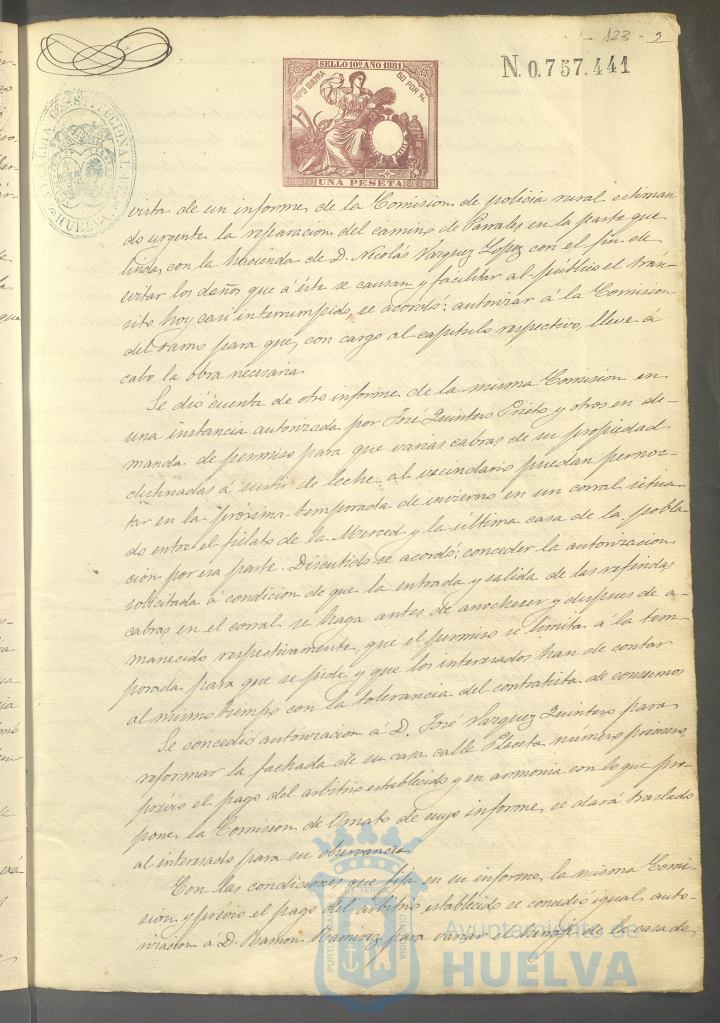 123 - 2
SELLO 10º AÑO 1881
IMPTO GUERRA
50 POR %
UNA PESETA
N. 0.757.441
ALCALDIA CONSTITUCIONAL DE HUELVA
vista de un informe de la Comision de policia rural estiman
do urgente la reparacion del camino de Parrales en la parte que
linda con la hacienda de D. Nicolás Vazquez Lopez con el fin de
evitar los daños que á éste se causan y facilitar al público el trán-
sito hoy casi interrumpido, se acordó: autorizar á la Comision
del ramo para que, con cargo al capítulo respectivo, lleve á
cabo la obra necesaria.
Se dió cuenta de otro informe de la misma Comision en
una instancia autorizada por José Quintero Prieto y otros en de-
manda de permiso para que varias cabras de su propiedad
destinadas á surtir de leche al vecindario puedan pernoc-
tar en la próxima temporada de invierno en un corral situa
do entre el fielato de la Merced y la última casa de la pobla
cion por esa parte. Discutido se acordó: conceder la autorizacion
solicitada á condicion de que la entrada y salida de las referidas
cabras en el corral se haga antes de anochecer y despues de a-
manecido respectivamente, que el permiso se limita á la tem-
porada para que se pide y que los interesados han de contar
al mismo tiempo con la tolerancia del contratista de consumos
Se concedió autorizacion á D. José Vazquez Quintero para
reformar la fachada de su casa calle Placeta número primero,
prévio el pago del arbitrio establecido y en armonia con lo que pro-
pone la Comision de Ornato de cuyo informe se dará traslado
al interesado para su observancia.
Con las condiciones que fija en su informe la misma Comi-
sion y prévio el pago del arbitrio establecido se concedió igual auto-
rizacion á D. Ramon Ramirez para variar el de la casa de
Ayuntamiento de
HUELVA